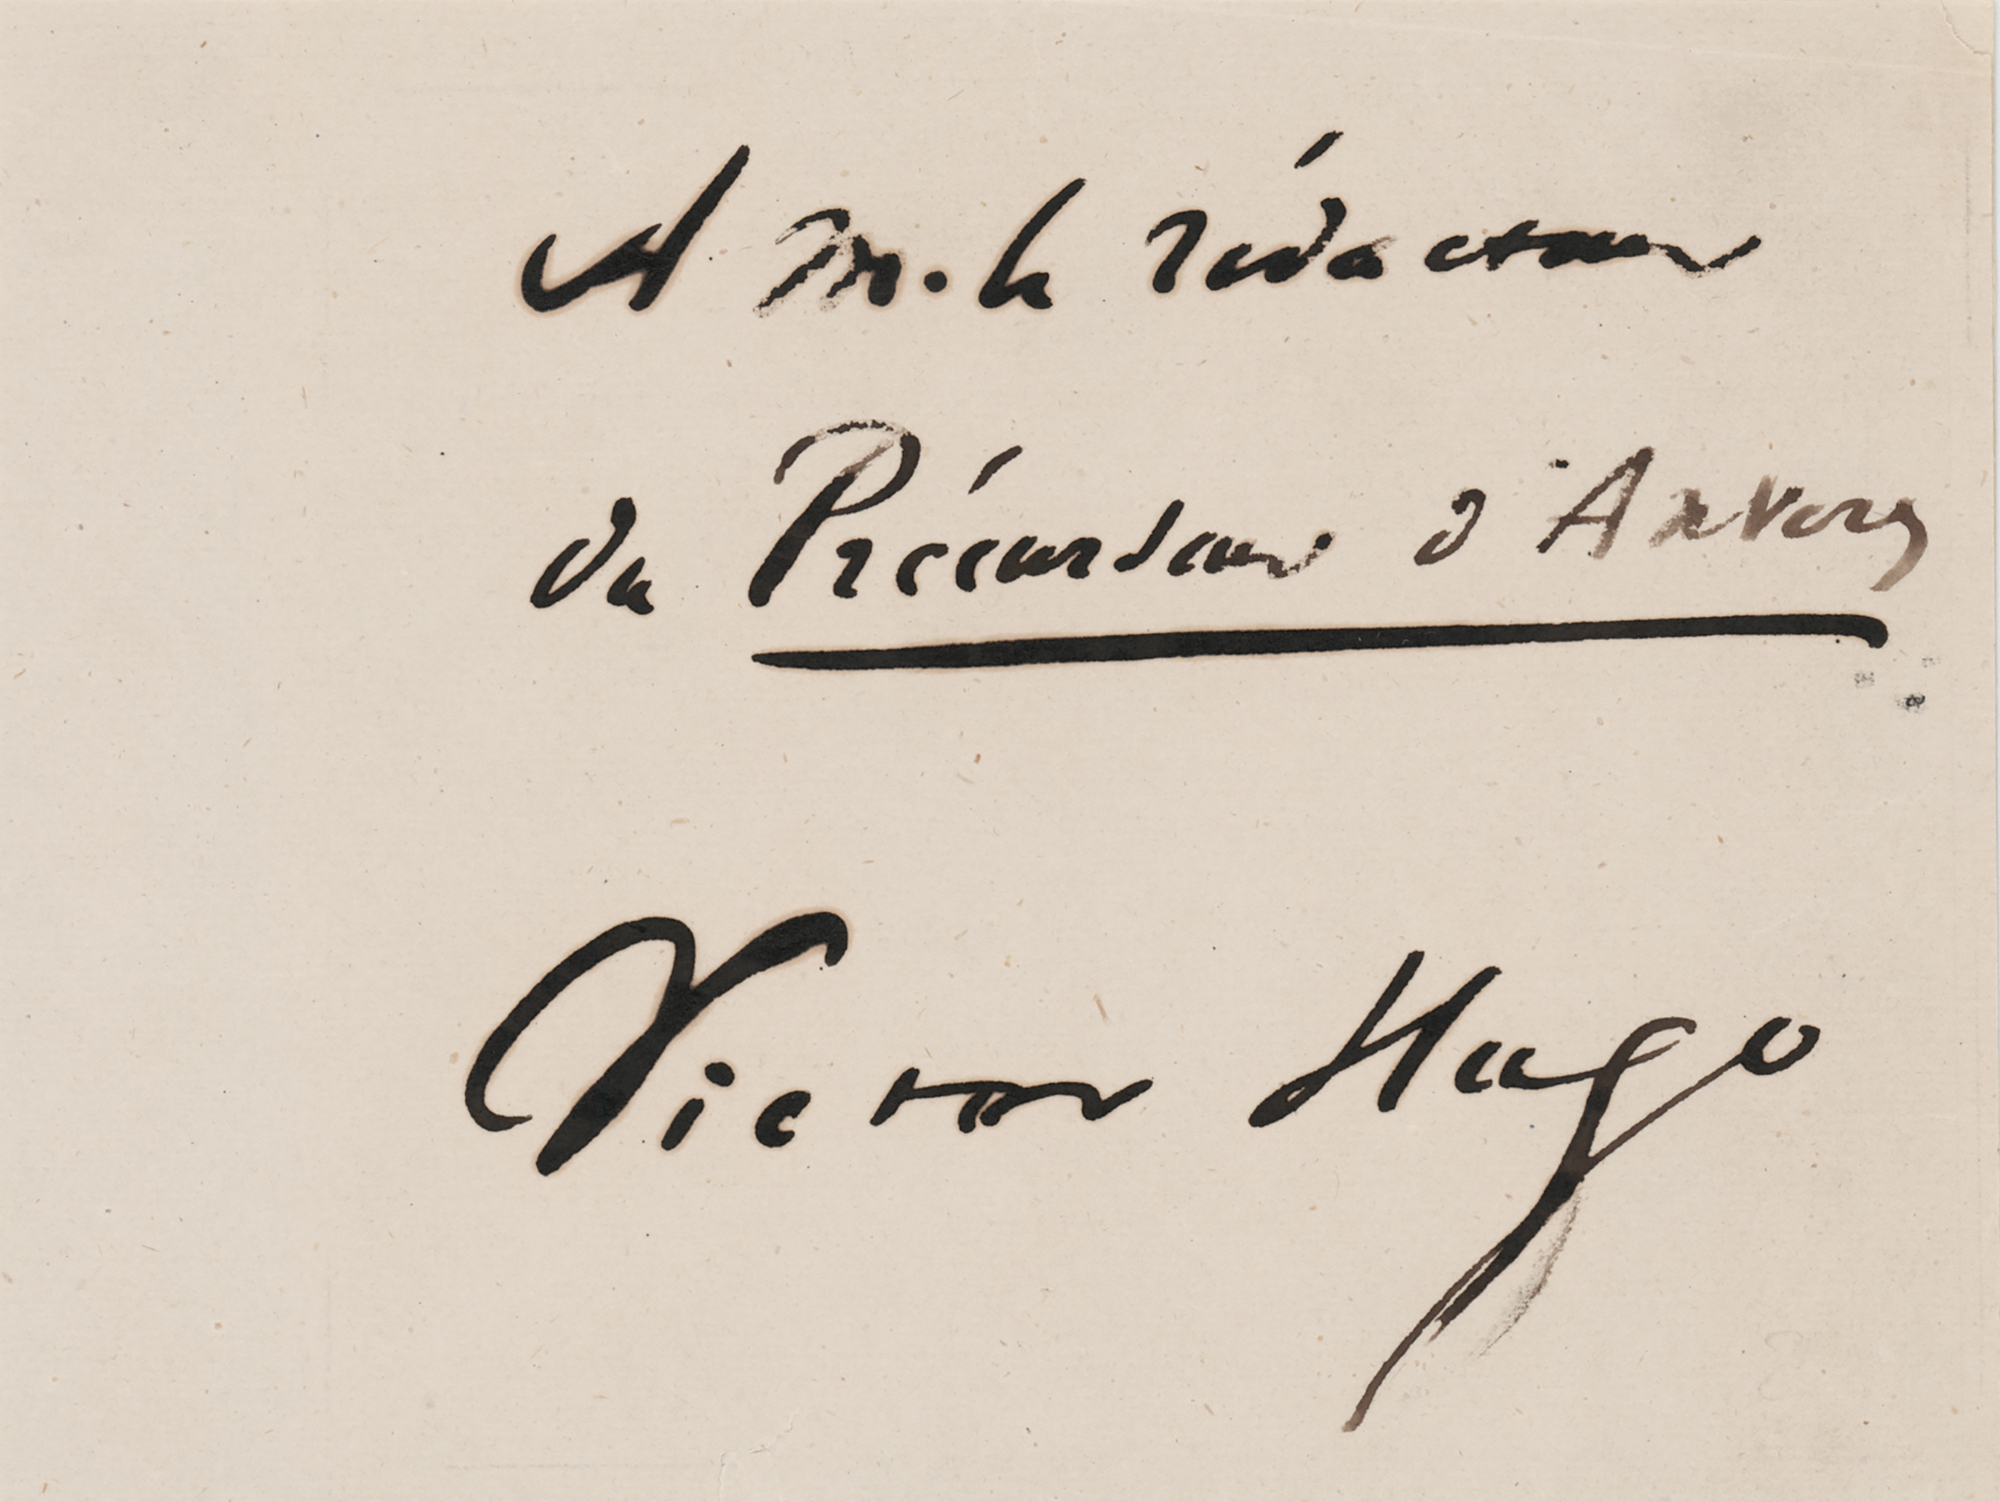 A M. le rédacteur
du Précurseur d'Anvers
Victor Hugo